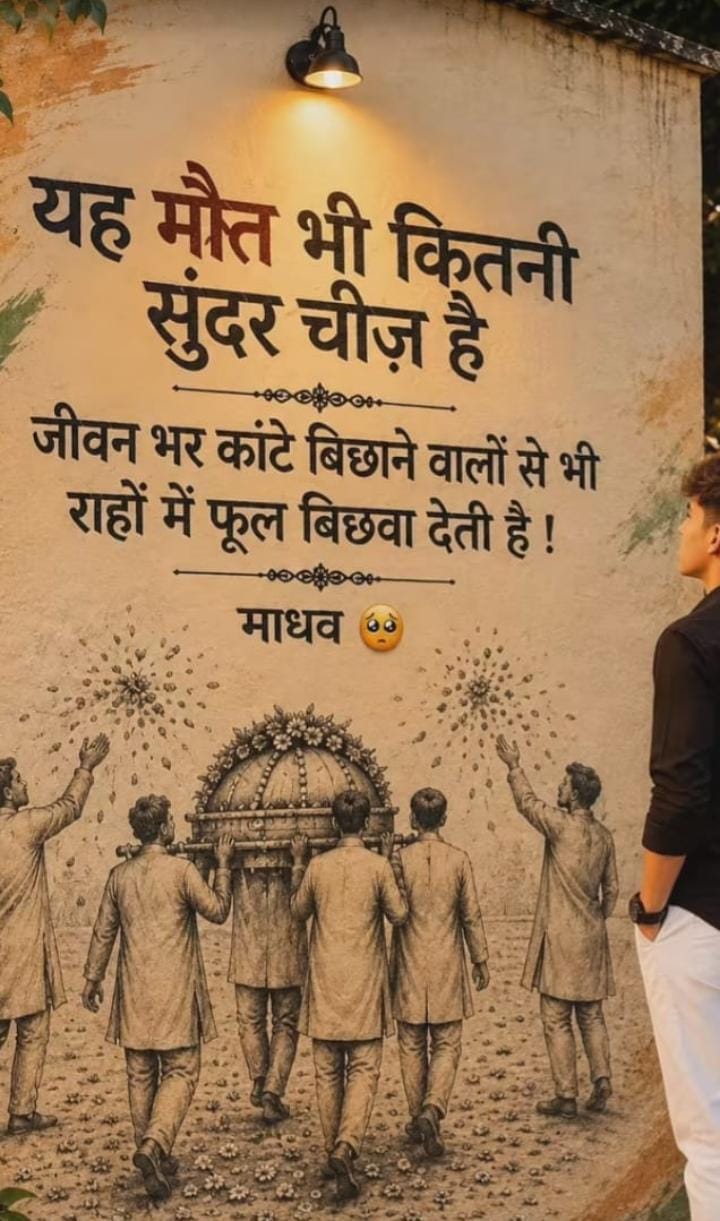 यह मौत भी कितनी
सुंदर चीज़ है
जीवन भर कांटे बिछाने वालों से भी
राहों में फूल बिछवा देती है !
माधव 🥺